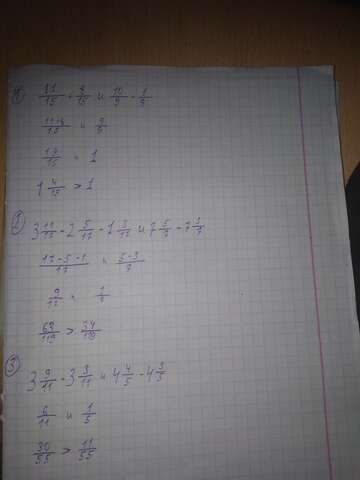 1) 11/15 + 8/15 и 10/9 - 1/9
11+8/15 и 9/9
19/15 и 1
1 4/15 > 1
2) 3 11/17 - 2 5/17 - 1 3/17 и 7 5/7 - 7 3/7
17-5-1/17 и 5-3/7
9/17 и 2/7
63/119 > 34/119
3) 3 9/11 - 3 3/11 и 4 4/5 - 4 3/5
6/11 и 1/5
30/55 > 11/55